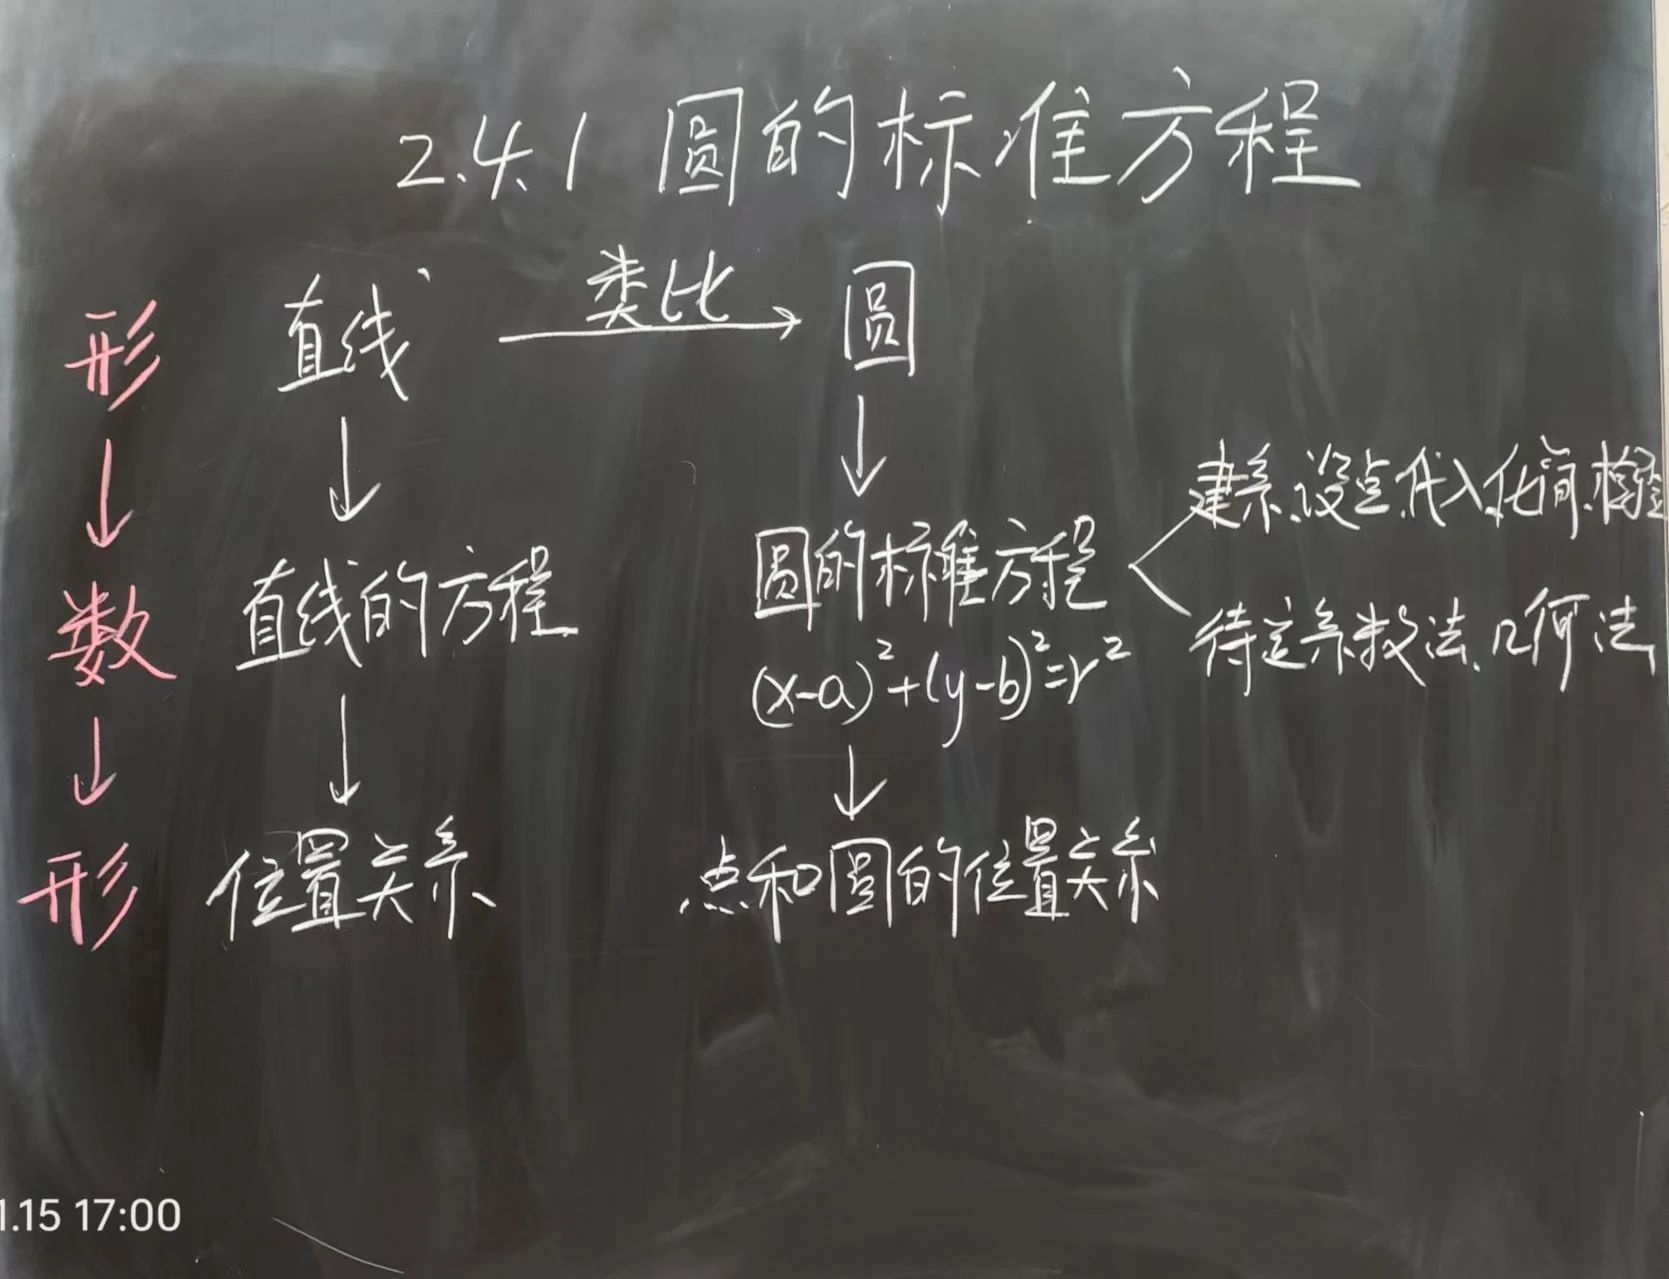 2.4.1 圆的标准方程
形 直线 类比 圆
↓ ↓ ↓
建系、设点、代入、化简、检验
数 直线的方程 圆的标准方程
待定系数法、几何法
(x-a)²+(y-b)²=r²
↓ ↓ ↓
形 位置关系 点和圆的位置关系
1.15 17:00